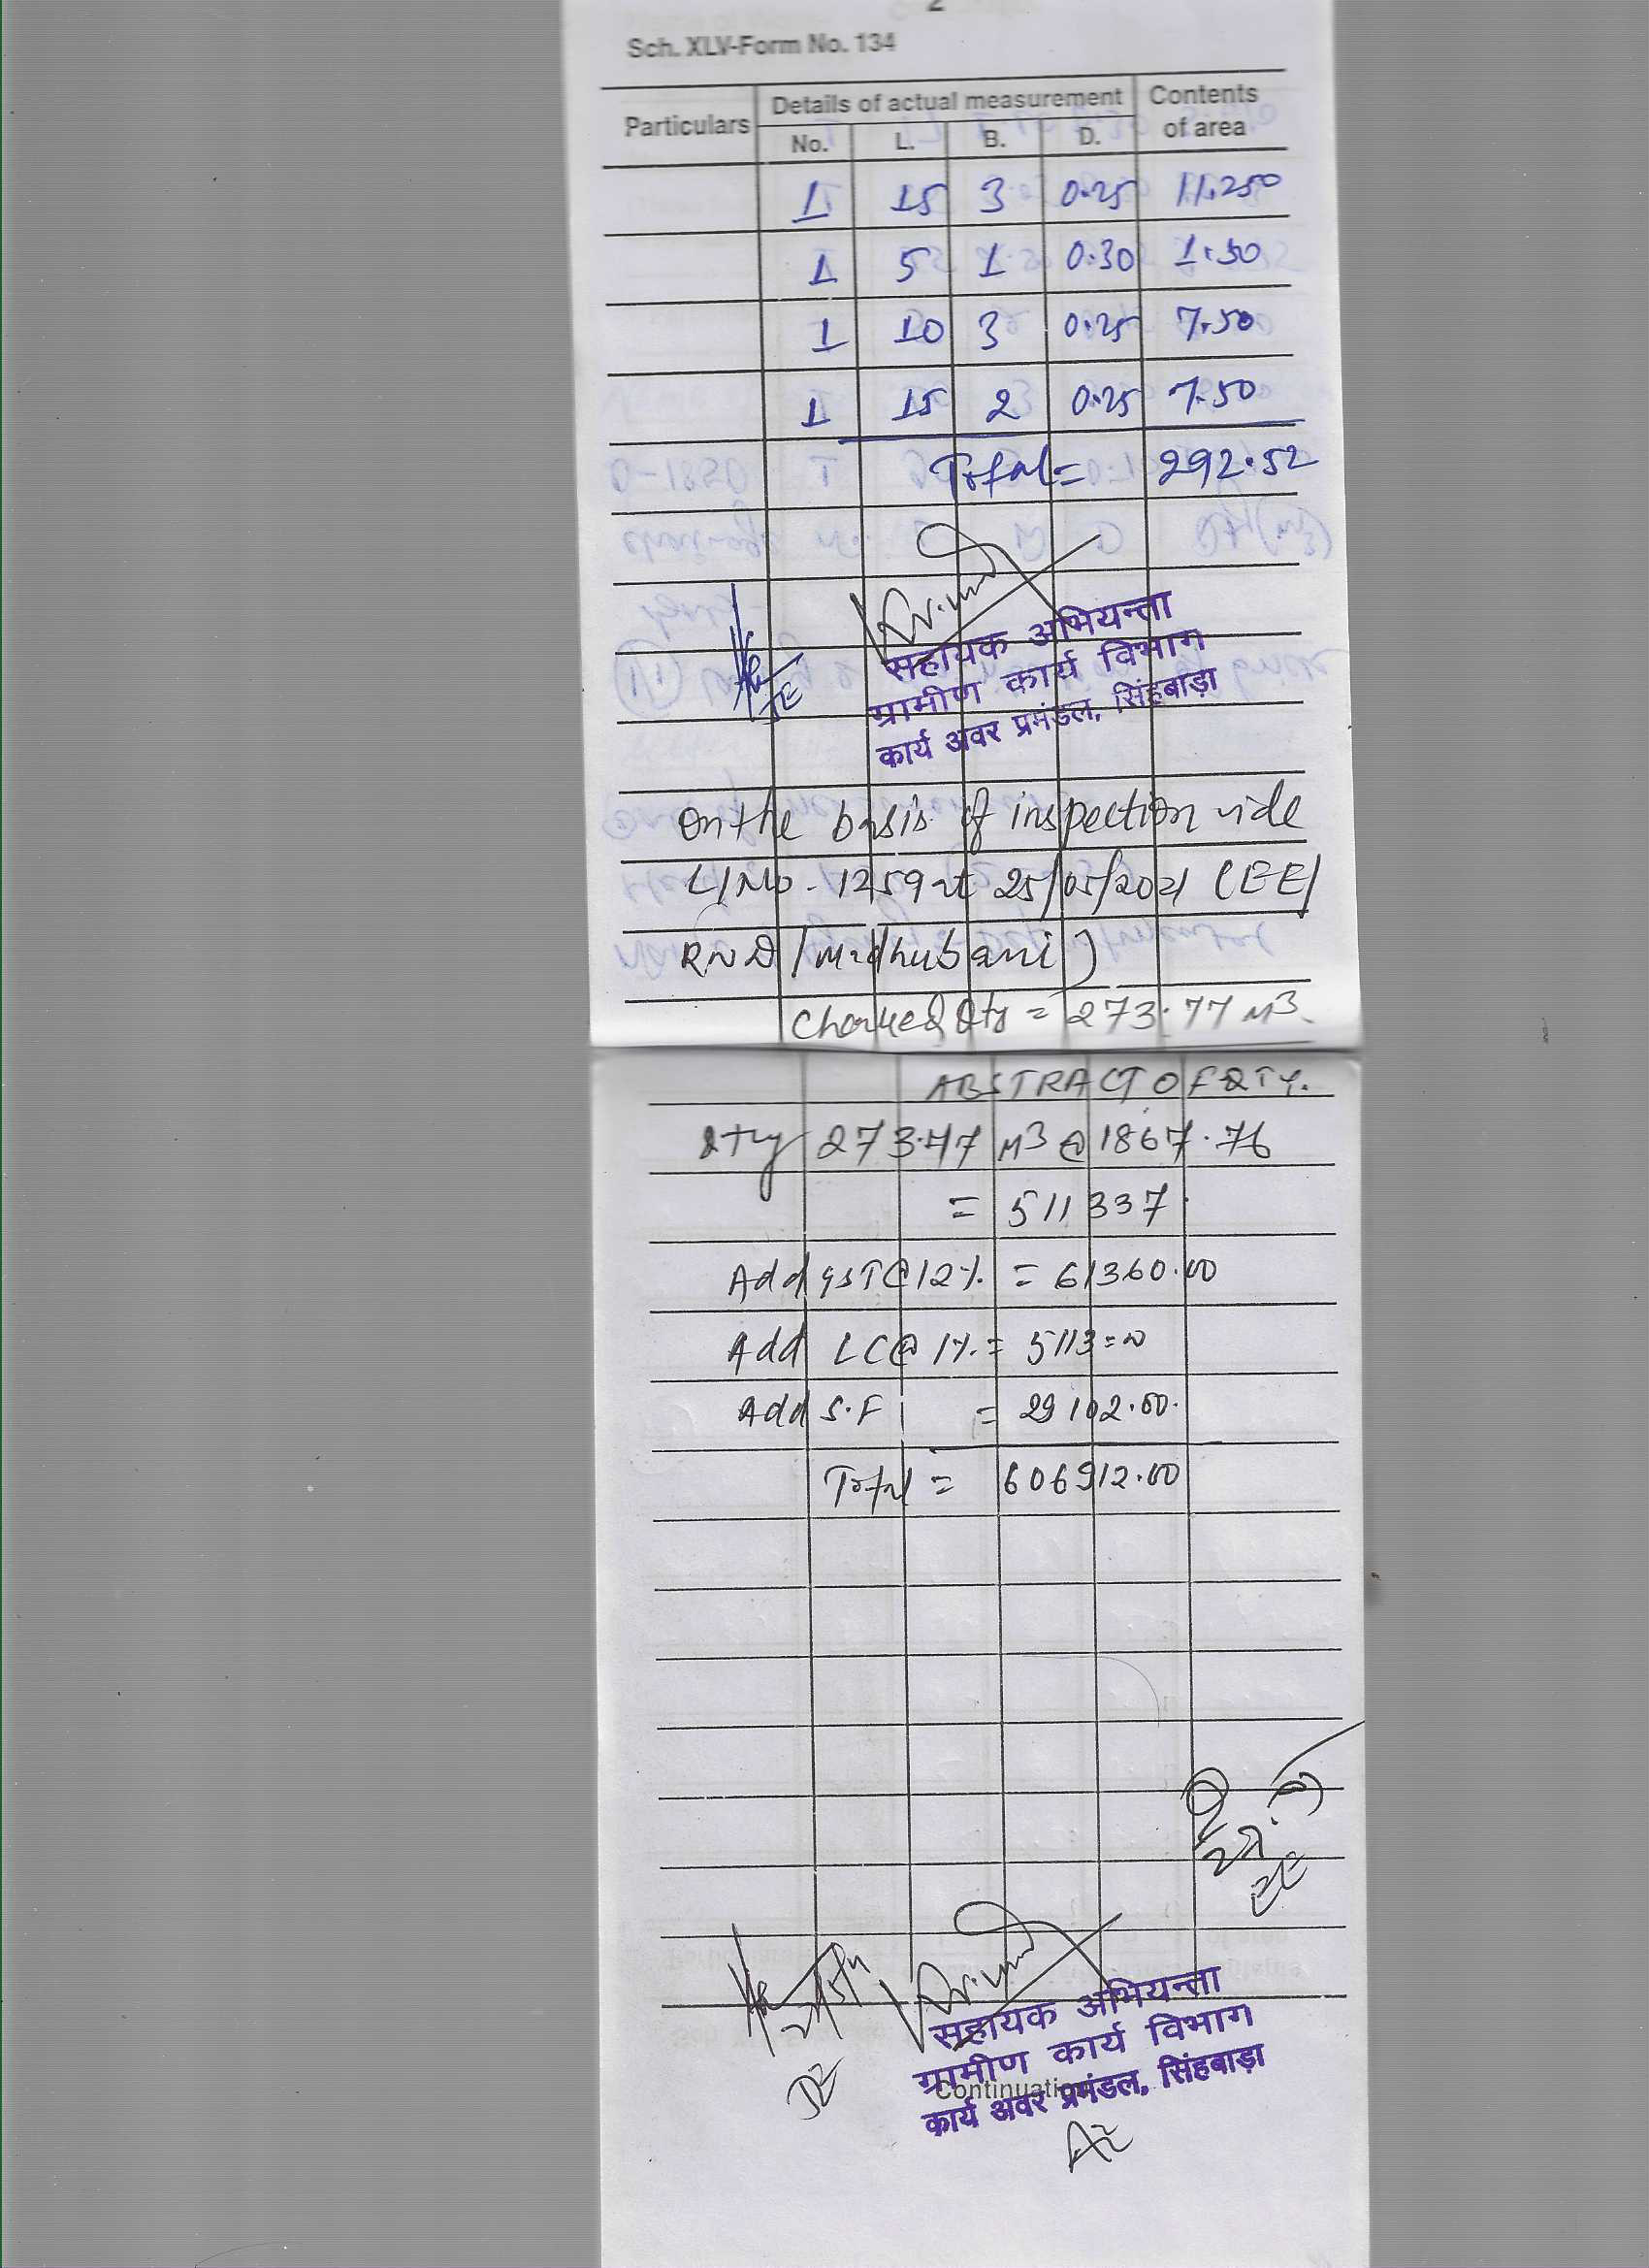 2
Sch. XLV-Form No. 134
Particulars Details of actual measurement Contents of area
No. L. B. D.
1 15 3 0.25 11.250
1 5 1 0.30 1.50
1 10 3 0.25 7.50
1 15 2 0.25 7.50
Total = 292.52
JE
सहायक अभियन्ता
ग्रामीण कार्य विभाग
कार्य अवर प्रमंडल, सिंहबाड़ा
On the basis of inspection vide
L/No - 1259 dt 25/05/2021 (EE/
RWD/Madhubani)
Charged Qty = 273.77 M3
ABSTRACT OF QTY.
Qty 273.77 M3 @ 1867.76
= 511337.
Add GST@12%. = 61360.00
Add LC@ 1%. = 5113=00
Add S.F = 29102.00.
Total = 606912.00
EE
JE
सहायक अभियन्ता
ग्रामीण कार्य विभाग
Continuation
कार्य अवर प्रमंडल, सिंहबाड़ा
AE